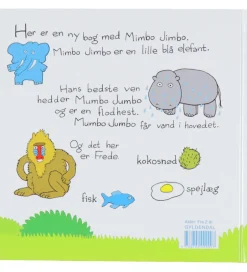 Her er en ny bog med Mimbo Jimbo.
Mimbo Jimbo er en lille blå elefant.
Hans bedste ven
hedder Mumbo Jumbo
og er en flodhest.
Mumbo Jumbo får vand i hovedet.
Og det her
er Frede.
kokosnød
fisk
spejlæg
GYLDENDAL